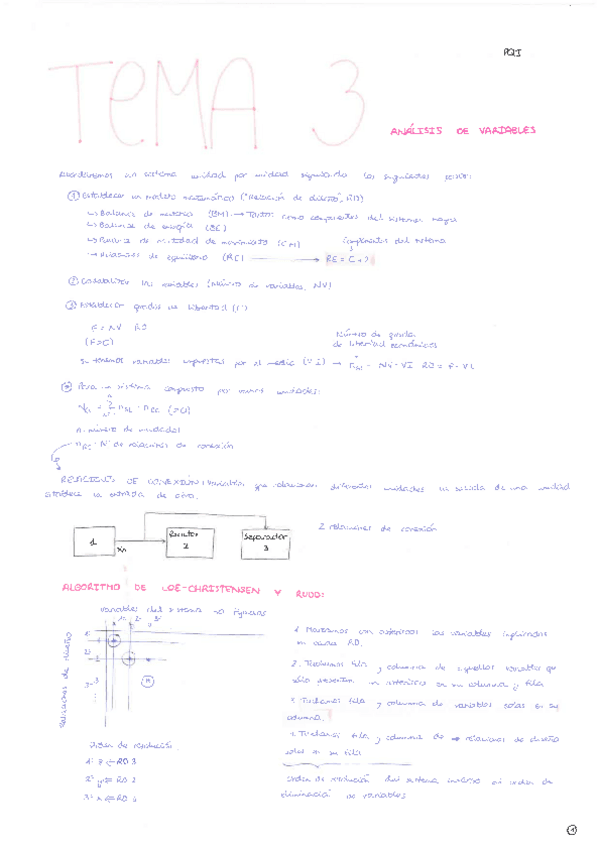 PQI
TEMA 3
ANÁLISIS DE VARIABLES
Abordaremos un sistema unidad por unidad siguiendo los siguientes pasos:
① Establecer un modelo matemático ("Relación de diseño", RD)
↳ Balance de materia (BM) → Tantos como componentes del sistema haya
↳ Balance de energía (BE)
↳ Balance de cantidad de movimiento (CM)
componentes del sistema
→ Relaciones de equilibrio (RE) → RE = C + 2
② Contabilizar las variables (Número de variables, NV)
③ Establecer grados de libertad (F)
F = NV RD
(F>C)
Número de grados
de libertad económicos
Si tenemos variables impuestas por el medio (= I) → NV - VI RD = F - VI
④ Para un sistema compuesto por varias unidades:
n: número de unidades
Nº de relaciones de conexión
RELACIONES DE CONEXIÓN: Variables que relacionan diferentes unidades la salida de una unidad
establece la entrada de otra.
1
Xn
Reactor
2
Separador
3
2 relaciones de conexión
ALGORITMO DE LEE-CHRISTENSEN Y RUDD:
variables del sistema no fijadas
Relaciones de diseño
1. Marcamos con asteriscos las variables implicadas
en cada RD.
2. Tachamos fila y columna de aquellas variables que
sólo presenten un asterisco en su columna y fila
3. Tachamos fila y columna de variables solas en su
columna.
4. Tachamos fila y columna de → relaciones de diseño
solas en su fila
Orden de resolución
RD 3
RD 2
Orden de resolución del sistema inverso al orden de
eliminación de variables
①